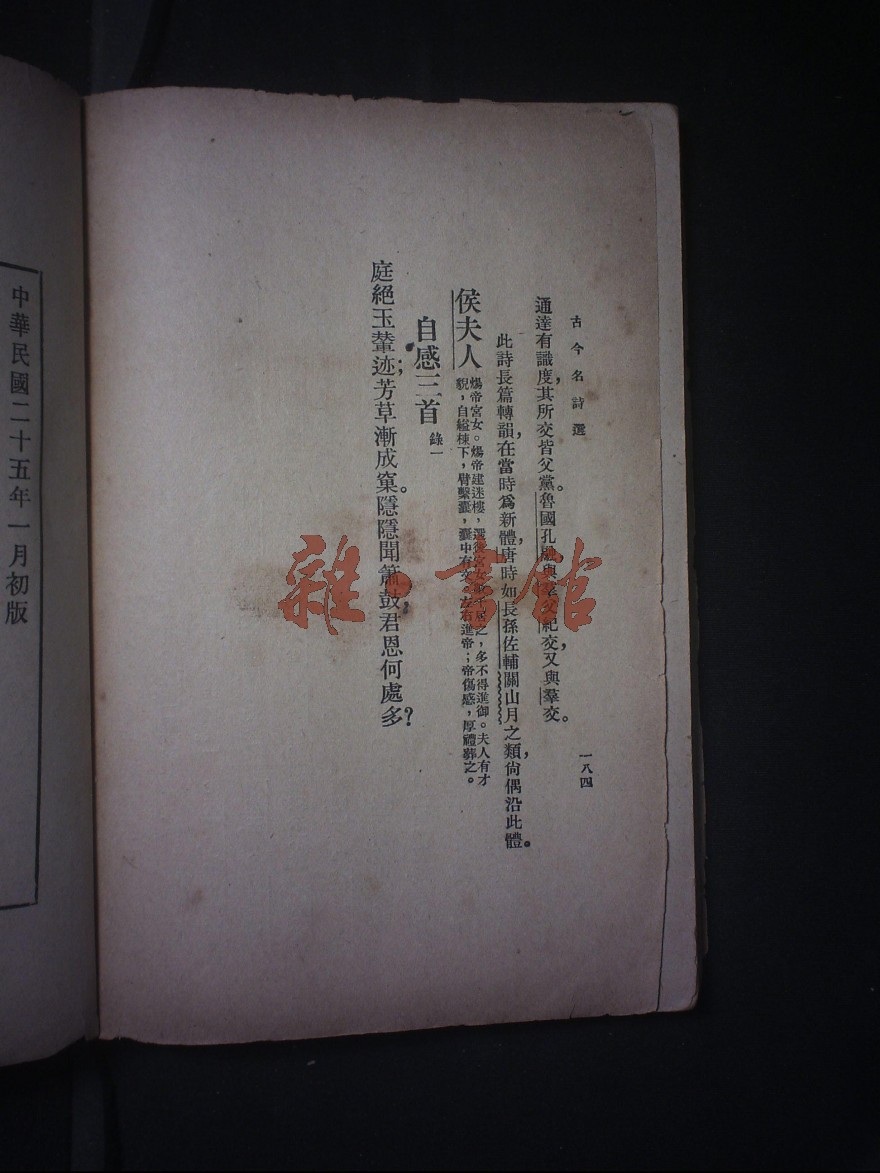 古今名詩選
一八四
通達有識度，其所交皆父黨。魯國孔融與羣父紀交，又與羣交。
此詩長篇轉韻，在當時爲新體，唐時如長孫佐輔關山月之類，尙偶沿此體。
侯夫人
煬帝宮女。煬帝建迷樓，選後宮女 之，多不得進御。夫人有才
貌，自縊棟下，臂繫囊，囊中有 左右進帝；帝傷感，厚禮葬之。
自感三首 錄一
庭絕玉輦迹；芳草漸成窠。隱隱聞簫鼓，君恩何處多？
中華民國二十五年一月初版
雜書館